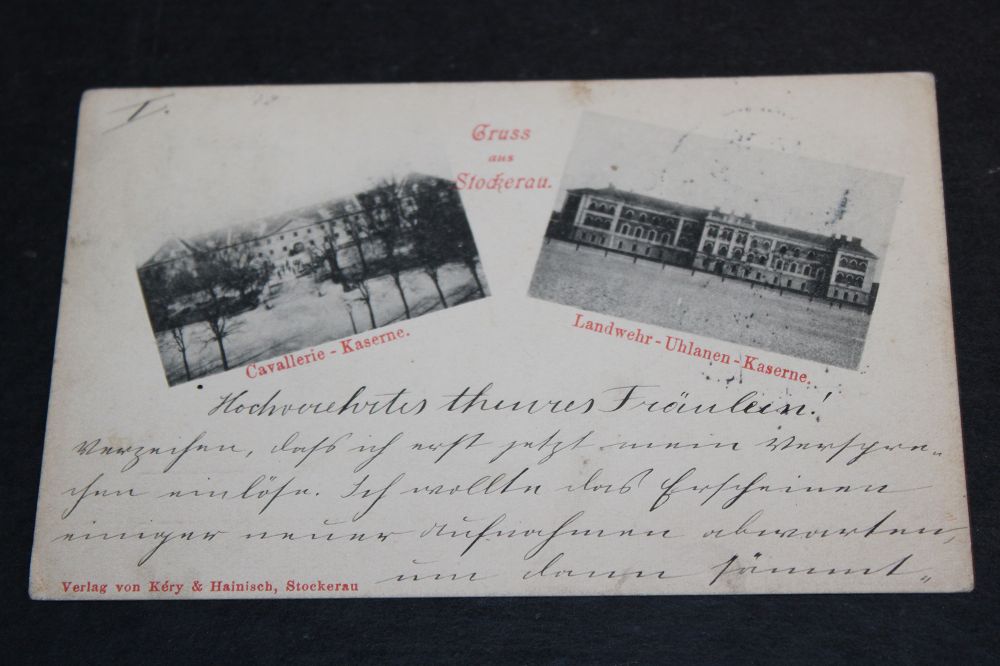 I.
Gruss
aus
Stockerau.
Cavallerie-Kaserne.
Landwehr-Uhlanen-Kaserne.
Hochverehrtes theures Fräulein!
Verzeihen, dass ich erst jetzt mein Verspre-
chen einlöse. Ich wollte das Erscheinen
einiger neuer Aufnahmen abwarten,
um dann sämmt-
Verlag von Kéry & Hainisch, Stockerau